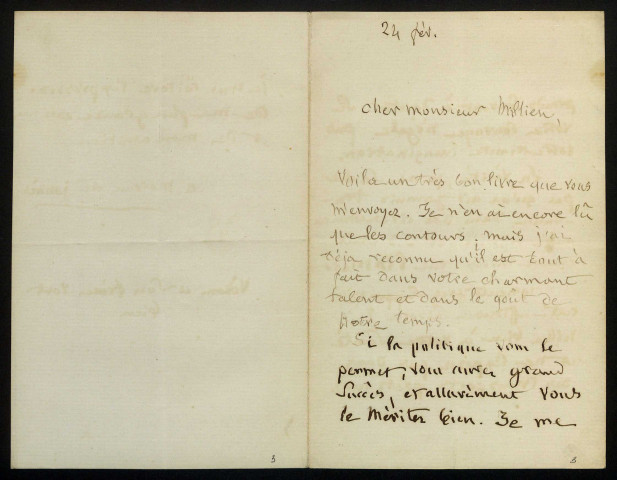 24 fév.
cher monsieur Millien,
Voilà un très bon livre que vous
m'envoyez. Je n'en ai encore lû
que les contours ; mais j'ai
déja reconnu qu'il est tout à
fait dans votre charmant
talent et dans le goût de
notre temps.
Si la politique vous le
permet, vous aurez grand
succès, et assurément vous
le méritez bien. Je me
3
3